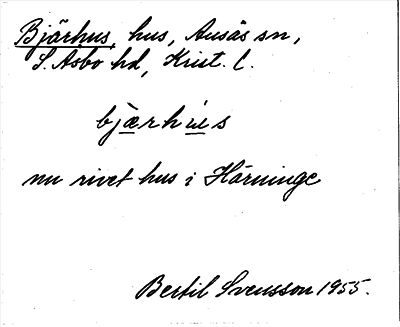 Bjärhus, hus, Ausås sn,
S. Åsbo hd, Krist. l.
bjærhus
nu rivet hus i Härninge
Bertil Svensson 1955.